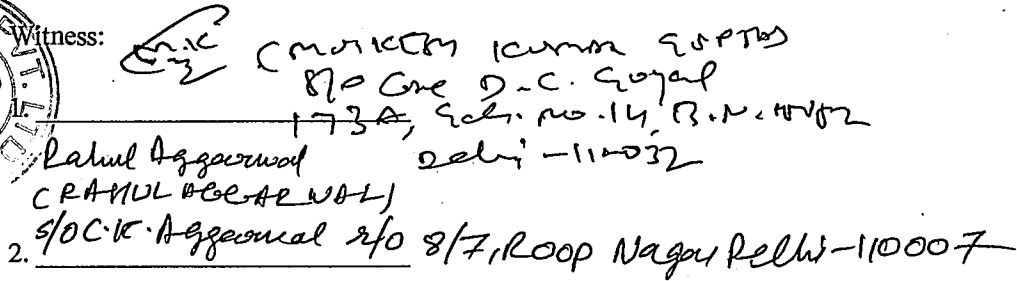 Witness:
KUMAR GUPTA
S/o D.C. Goyal
1. 173A, Gali No. 14, B.N.
Delhi-110032
Rahul Aggarwal
(RAHUL AGGARWAL)
S/O C.K. Aggarwal r/o 8/7, Roop Nagar Delhi-110007
2.
T. LTD